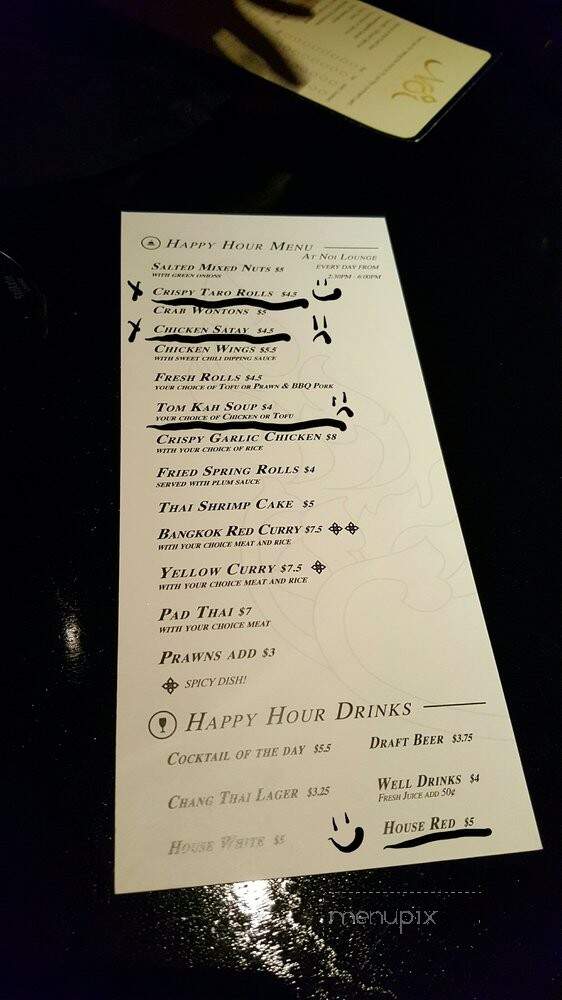 Noi
HAPPY HOUR MENU
AT NOI LOUNGE
EVERY DAY FROM
2:30PM - 6:00PM
SALTED MIXED NUTS $5
WITH GREEN ONIONS
CRISPY TARO ROLLS $4.5
CRAB WONTONS $5
CHICKEN SATAY $4.5
CHICKEN WINGS $5.5
WITH SWEET CHILI DIPPING SAUCE
FRESH ROLLS $4.5
YOUR CHOICE OF TOFU OR PRAWN & BBQ PORK
TOM KAH SOUP $4
YOUR CHOICE OF CHICKEN OR TOFU
CRISPY GARLIC CHICKEN $8
WITH YOUR CHOICE OF RICE
FRIED SPRING ROLLS $4
SERVED WITH PLUM SAUCE
THAI SHRIMP CAKE $5
BANGKOK RED CURRY $7.5
WITH YOUR CHOICE MEAT AND RICE
YELLOW CURRY $7.5
WITH YOUR CHOICE MEAT AND RICE
PAD THAI $7
WITH YOUR CHOICE MEAT
PRAWNS ADD $3
SPICY DISH!
HAPPY HOUR DRINKS
COCKTAIL OF THE DAY $5.5
DRAFT BEER $3.75
CHANG THAI LAGER $3.25
WELL DRINKS $4
FRESH JUICE ADD 50¢
HOUSE WHITE $5
HOUSE RED $5
menupix